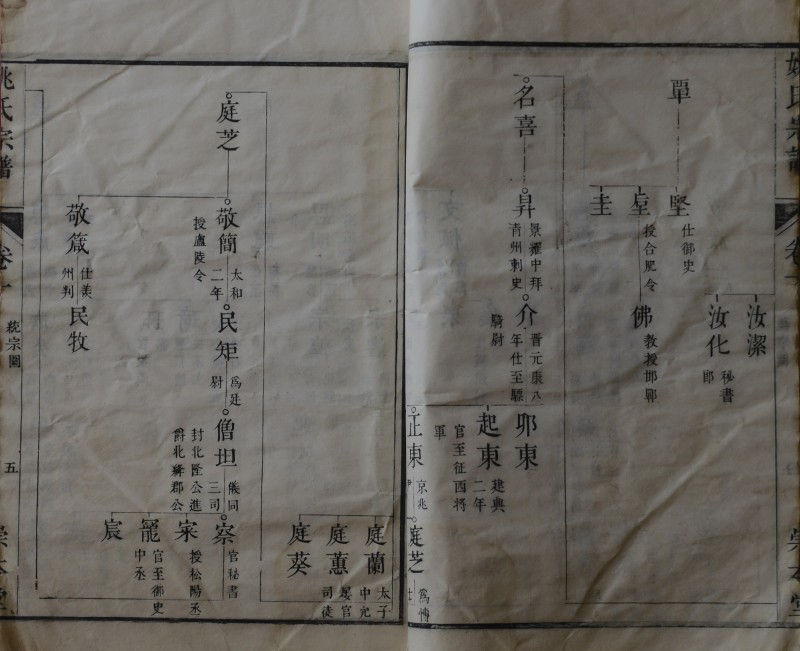 姚氏宗譜
覃
堅
仕御史
堂
授合肥令
圭
汝潔
汝化
秘書
郎
佛
教授邯鄲
名喜
昇
景耀中拜
青州刺史
介
晋元康八
年仕至驃
騎尉
卯東
起東
建興
二年
官至征西將
軍
正東
京兆
庭芝
為博
士
庭蘭
太子
中允
庭蕙
屡官
司徒
庭葵
庭芝
敬簡
太和
二年
授盧陵令
敬箴
仕羨
州判
民矩
為廷
尉
民牧
僧坦
儀同
三司
封北隆公進
爵北絳郡公
察
官秘書
寀
授松陽丞
寵
官至御史
中丞
宸
姚氏宗譜
卷一
統宗圖
五
崇本堂